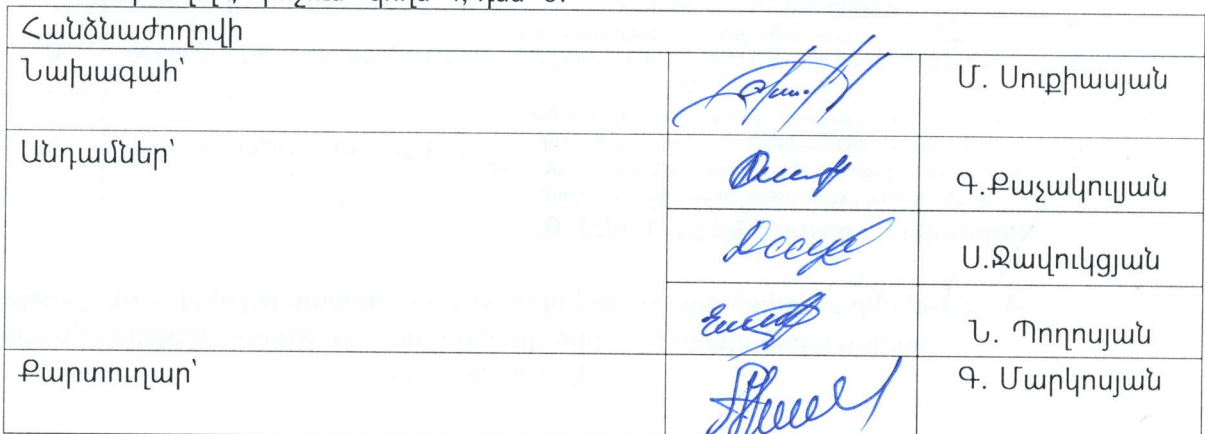 Հանձնաժողովի
Նախագահ՝ Մ. Սուքիասյան
Անդամներ՝ Գ.Քաչակուլյան
Ս.Ջավուկցյան
Ն. Պողոսյան
Քարտուղար՝ Գ. Մարկոսյան